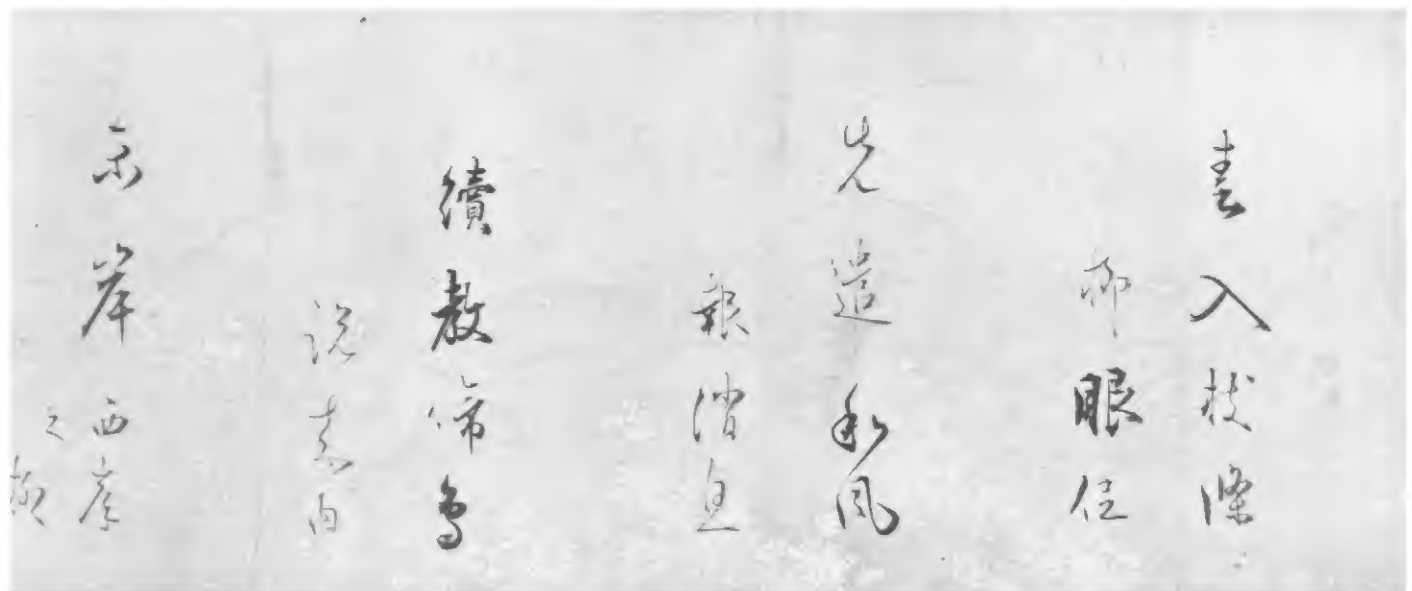 春入枝條
柳眼低
先遣和風
報消息
續教啼鳥
説来由
東岸西岸
之柳